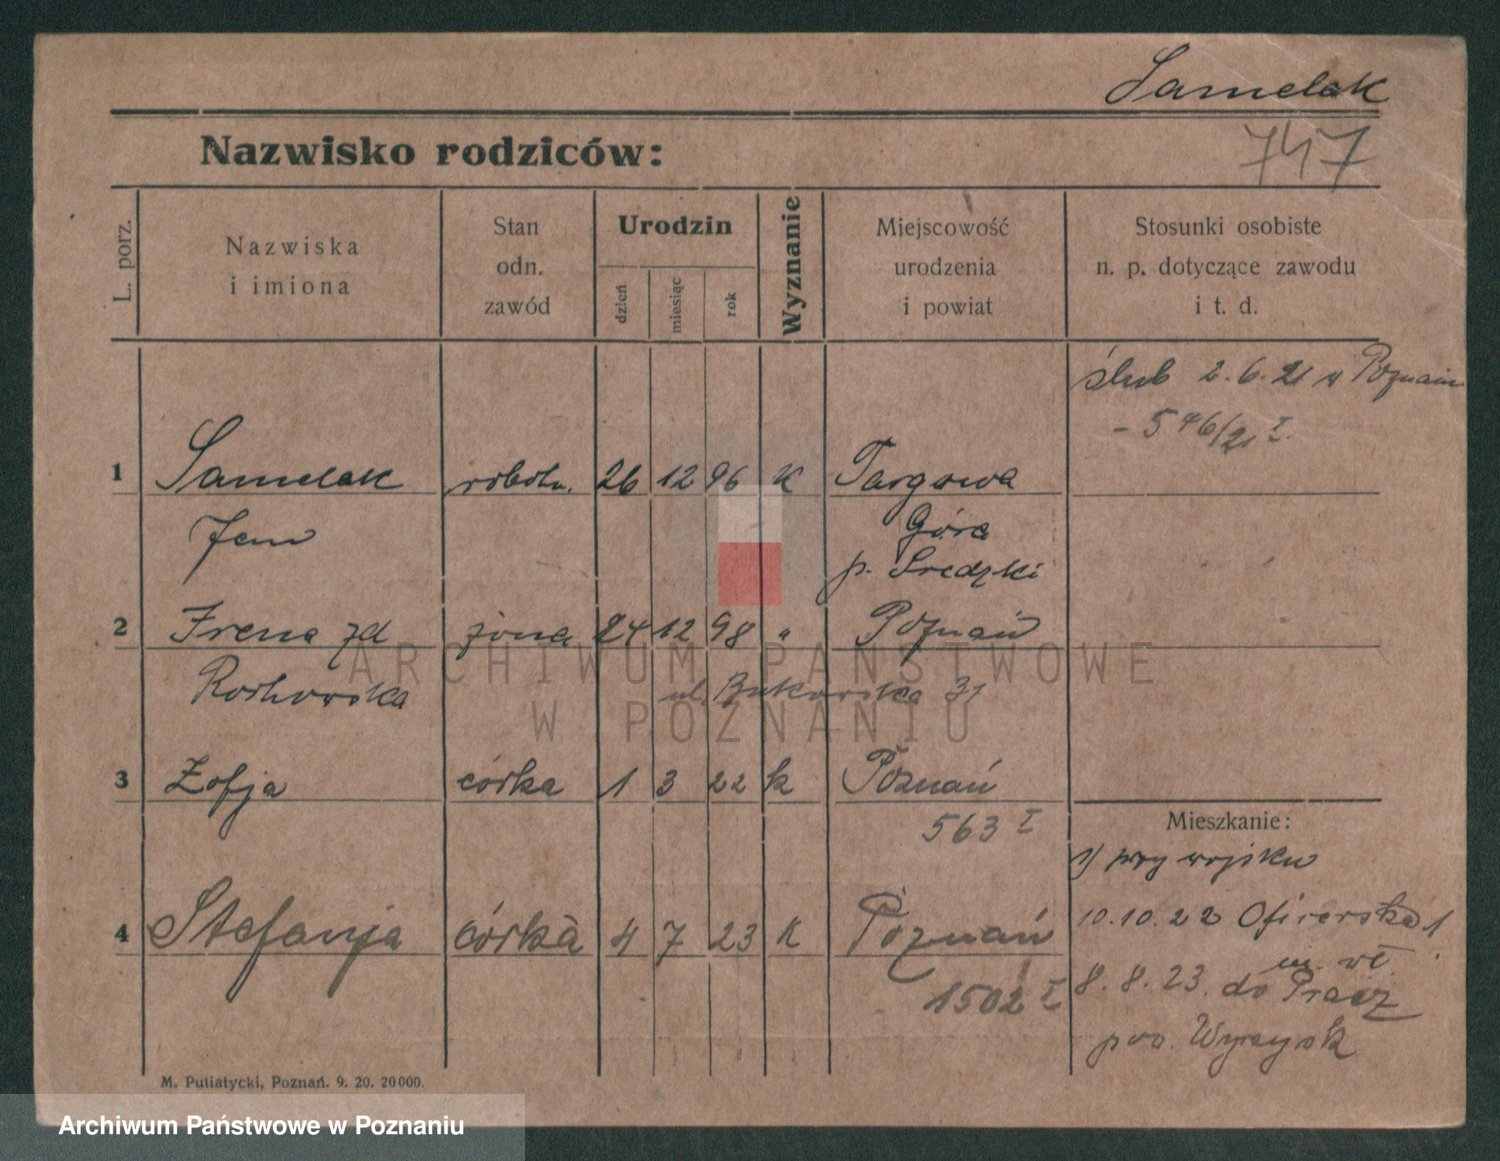 Samelak
747
Nazwisko rodziców:
L. porz.
Nazwiska
i imiona
Stan
odn.
zawód
Urodzin
dzień
miesiąc
rok
Wyznanie
Miejscowość
urodzenia
i powiat
Stosunki osobiste
n. p. dotyczące zawodu
i t. d.
ślub 2.6.21 w Poznaniu
- 546/21 I.
1 Samelak robotn. 26 12 96 K Targowa
Jan Góra
p. Średzki
2 Irena zd żona 24 12 98 " Poznań
ul. Bukowska 31
3 Zofja córka 1 3 22 k Poznań
563 I
Mieszkanie:
1) przy wojsku
4 Stefanja córka 4 7 23 K Poznań
1502 I
10.10.22 Oficerska 1
8.8.23. do
pow. Wyrzysk
M. Putiatycki, Poznań. 9. 20. 20000.
ARCHIWUM PAŃSTWOWE
W POZNANIU
Archiwum Państwowe w Poznaniu